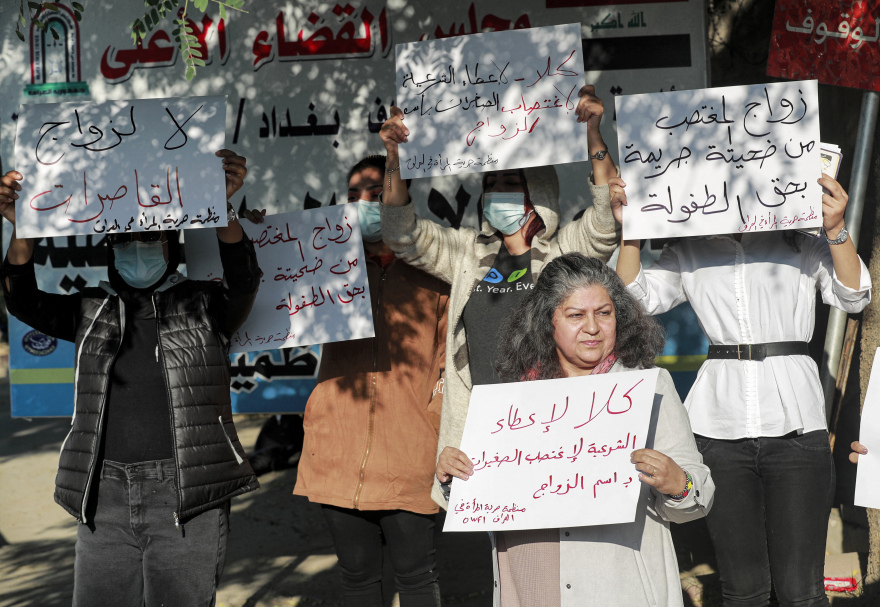 مجلس القضاء الأعلى
الله اكبر
الوقوف
بغداد /
لا لزواج
القاصرات
منظمة حرية المرأة في العراق
كلا - لإعطاء الشرعية
لاغتصاب الصغيرات بأسم
الزواج
منظمة حرية المرأة في العراق
زواج المغتصب
من ضحيتة جريمة
بحق الطفولة
منظمة حرية المرأة في العراق
زواج المغتصب
من ضحيتة
بحق الطفولة
منظمة حرية المرأة في
كلا لإعطاء
الشرعية لإغتصب الصغيرات
باسم الزواج
منظمة حرية المرأة في
العراق OWFI
t. Year. Eve